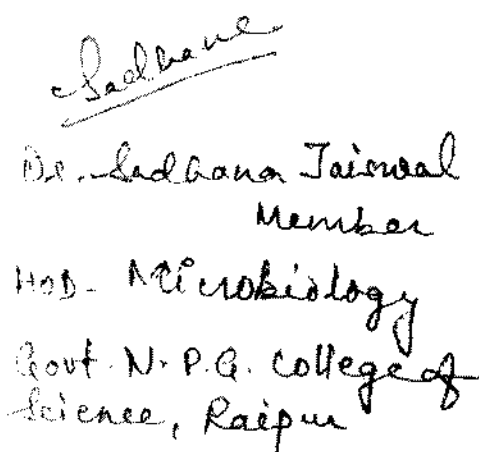 Sadhana
Dr. Sadhana Jaiswal
Member
HOD- Microbiology
Govt. N. P.G. College of
Science, Raipur